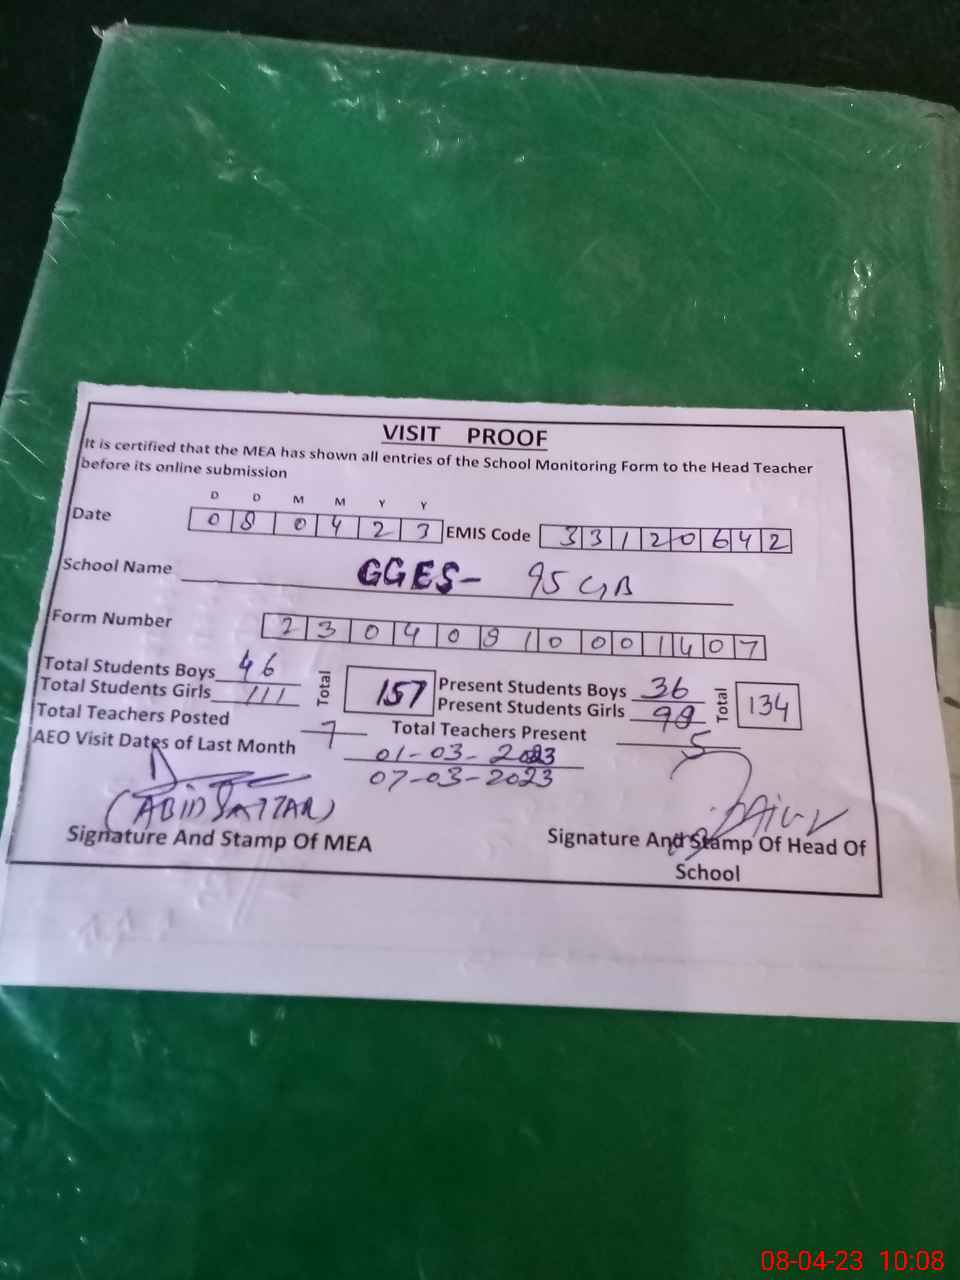 VISIT PROOF
It is certified that the MEA has shown all entries of the School Monitoring Form to the Head Teacher
before its online submission
D D M M Y Y
Date 0 8 0 4 2 3 EMIS Code 3 3 1 2 0 6 4 2
School Name GGES- 95 GB
Form Number 2 3 0 4 0 8 1 0 0 0 1 4 0 7
Total Students Boys 46 Total 157 Present Students Boys 36 Total 134
Total Students Girls 111 Present Students Girls 98
Total Teachers Posted 7 Total Teachers Present 5
AEO Visit Dates of Last Month 01-03-2023
07-03-2023
(ABID SATTAR)
Signature And Stamp Of MEA Signature And Stamp Of Head Of
School
08-04-23 10:08